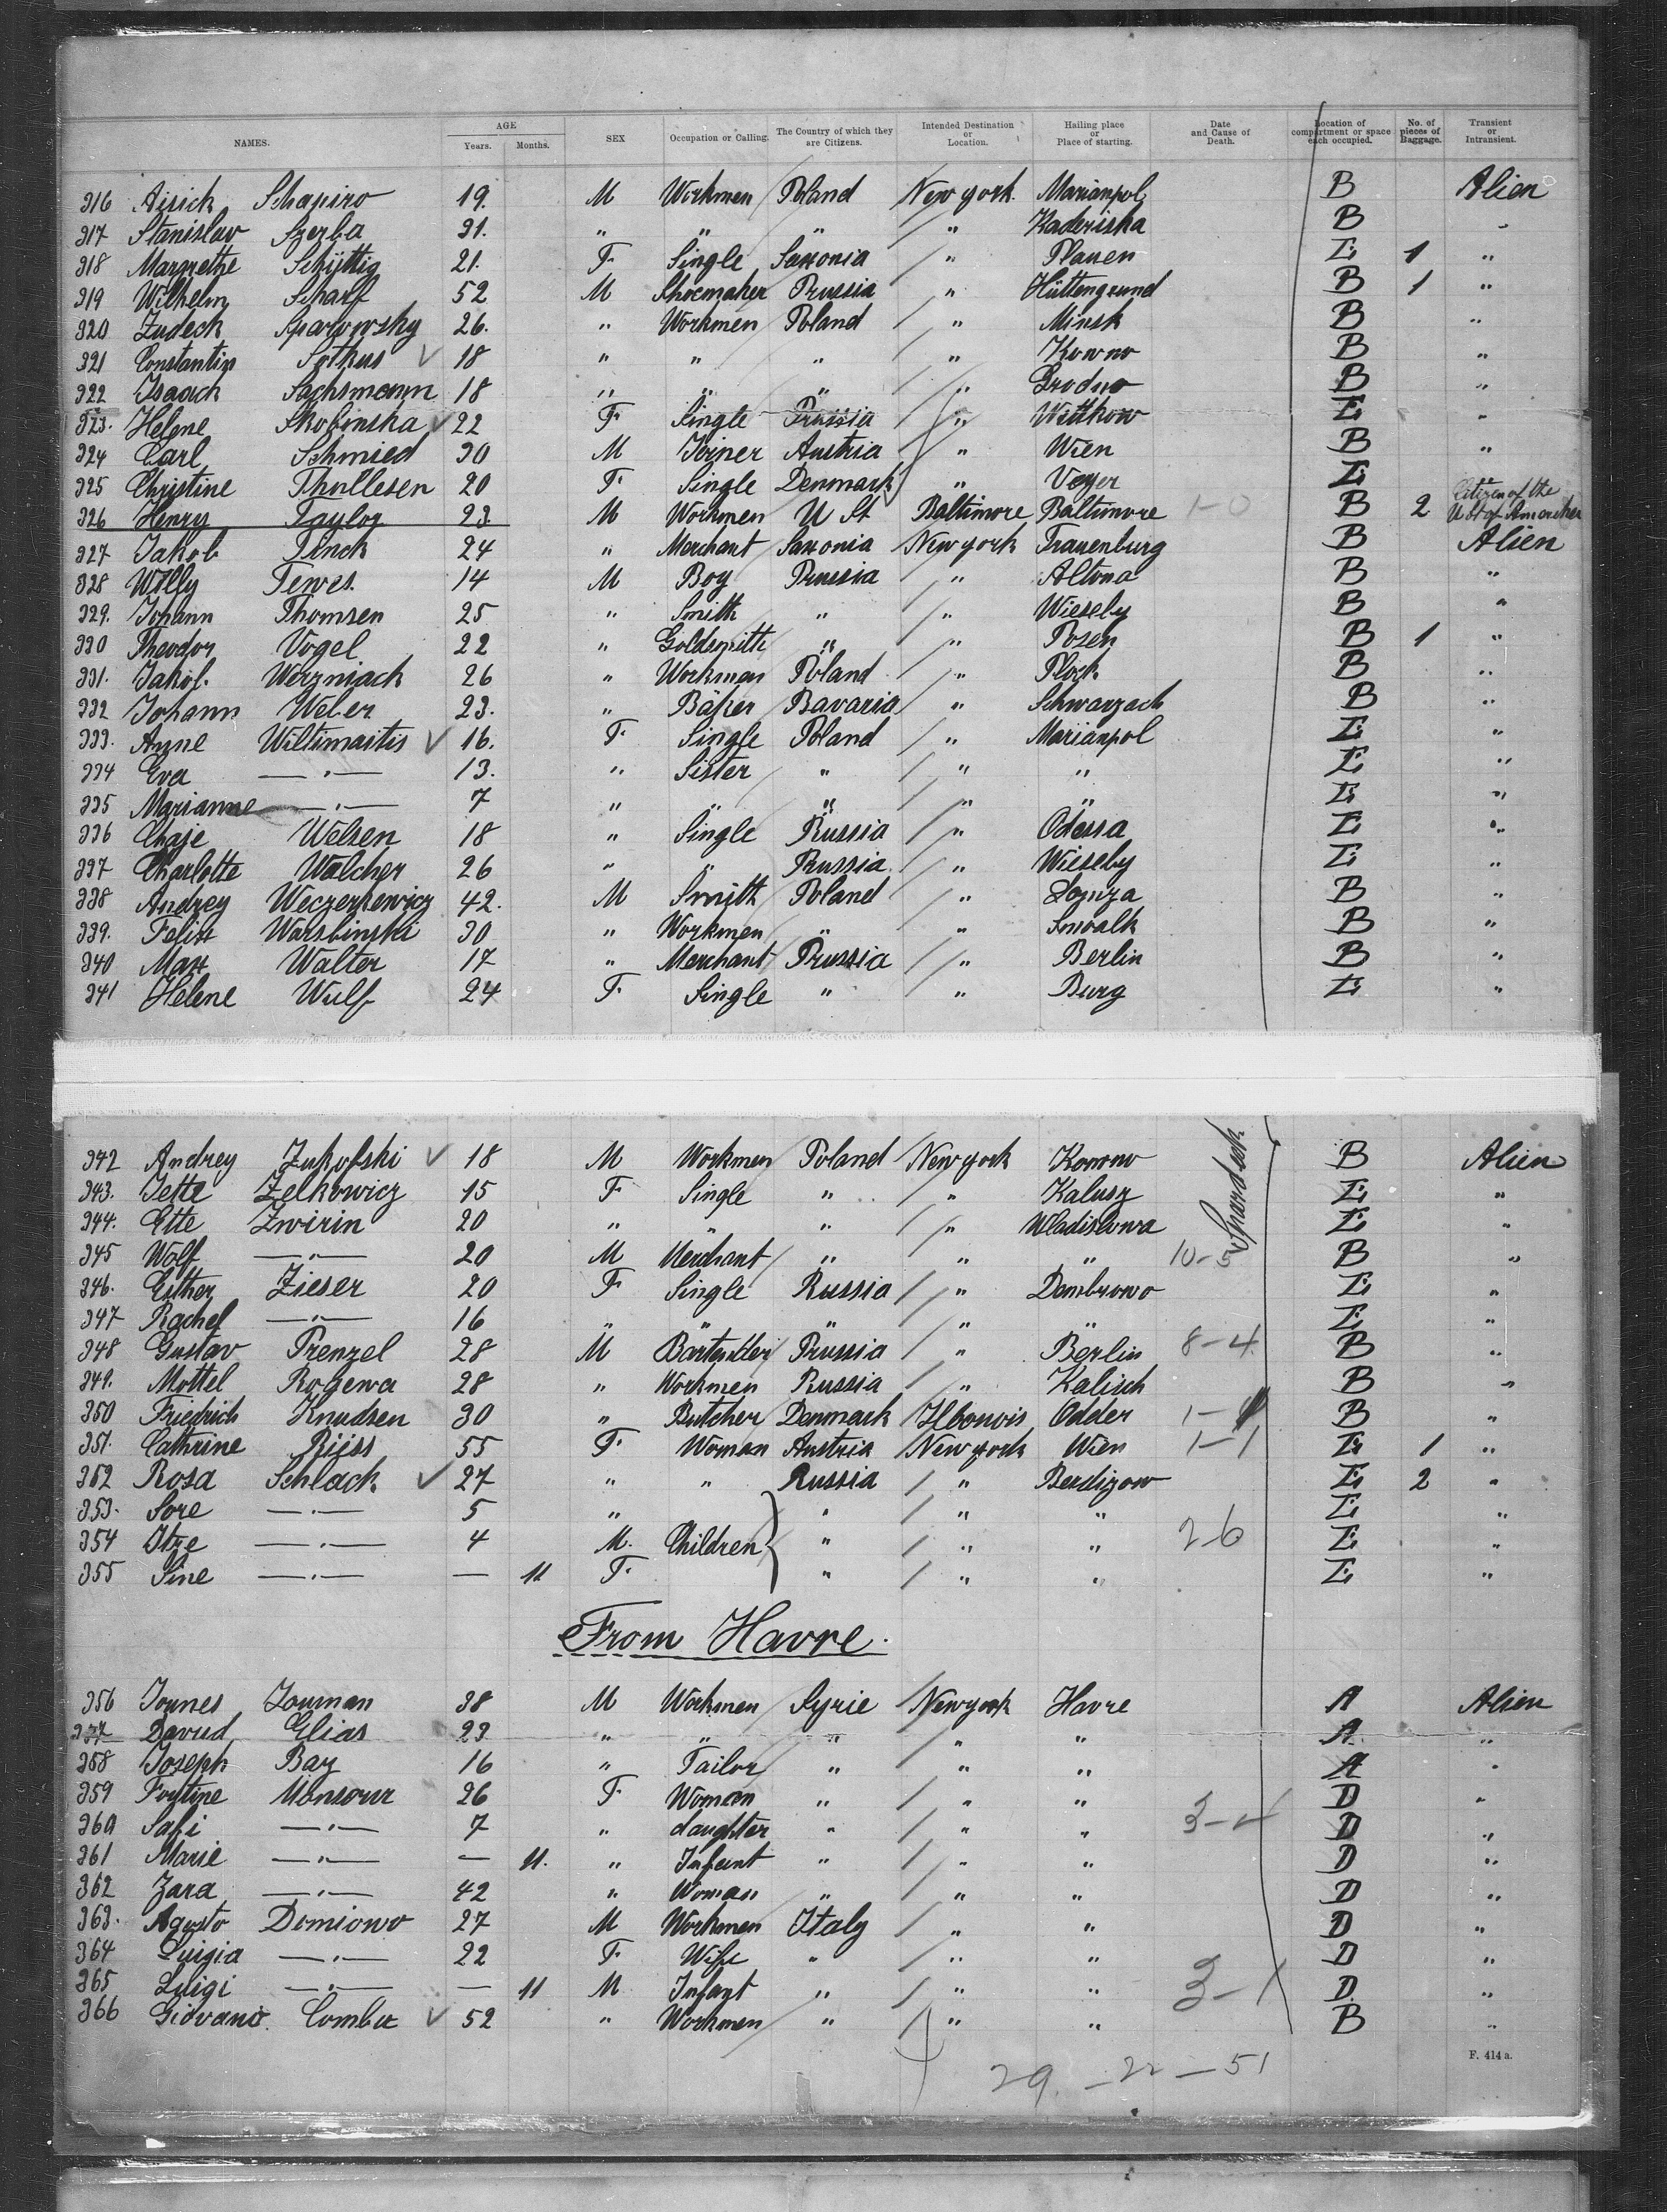 NAMES. AGE Years. Months. SEX Occupation or Calling. The Country of which they are Citizens. Intended Destination or Location. Hailing place or Place of starting. Date and Cause of Death. Location of compartment or space each occupied. No. of pieces of Baggage. Transient or Intransient.
316 Aisick Schapiro 19. M Workmen Poland New york. Marianpol B Alien
317 Stanislav Szerba 31. " " " " Kaderiska B "
318 Margrethe 21. F Single Saxonia " Plauen 1 "
319 Wilhelm Scharf 52 M Shoemaker Prussia " Hüttengrund B 1 "
320 Zudeck Sparowsky 26. " Workmen Poland " Minsk B "
321 Constantin Sotkus 18 " " " " Kowno B "
322 Isaack Sachsmann 18 " " " " Grodno B "
323. Helene Skobinska 22 F Single Prussia " Wittkow "
324 Carl Schmied 30 M Joiner Austria " Wien B "
325 Christine Thullesen 20 F Single Denmark " Veger
326 Henry Taylor 23. M Workmen U St Baltimore Baltimore 1-0 B 2 Citizen of the U St of Amerika
327 Jakob Finck 24 " Merchant Saxonia New york Frauenburg B Alien
328 Willy Tewes. 14 M Boy Prussia " Altona B "
329. Johann Thomsen 25 " Smith " " Wieseby B "
330 Theodor Vogel 22 " Goldsmith " " Posen B 1 "
331. Jakob. Werzniack 26 " Workman Poland " Plock B "
332 Johann Weber 23. " Baker Bavaria " Schwarzach B "
333. Anne Wiltimaitis 16. F Single Poland " Marianpol "
334 Eva —"— 13. " Sister " " " "
335 Marianne —"— 7 " " " " " "
336 Chaje Welsen 18 " Single Russia " Odessa "
337 Charlotte Walcher 26 " " Prussia " Wieseby "
338 Andrey Weczerkewicz 42. M Smith Poland " Lomza B "
339. Felix Warsbinski 30 " Workmen " " Suwalk B "
340 Max Walter 17 " Merchant Prussia " Berlin B "
341 Helene Wulf 24 F Single " " Burg "
342 Andrey Zukofski 18 M Workmen Poland New york Kowno B Alien
343. Jette Zelkowicz 15 F Single " " Kalusz "
344. Ette Zwirin 20 " " " " Wladislowa "
345 Wolf —"— 20 M Merchant " " " 10-5 B "
346. Esther Zieser 20 F Single Russia " Dombrowo "
347 Rachel —"— 16 " " " " " "
348 Gustav Prenzel 28 M Prussia " Berlin 8-4 B "
349. Mottel Rogewa 28 " Workmen Russia " Kalisch B "
350 Friedrich Knudsen 30 " Butcher Denmark Odder 1- B "
351. Cathrine 55 F Woman Austria New york Wien 1-1 1 "
352 Rosa Schlack. 27 " " Russia " Berdizow 2 "
353. Sore —"— 5 " " " "
354 Itze —"— 4 M. Children " " " 2-6 "
355 Sine —"— — 11 F " " " "
From Havre.
356 Jounes Zouman 38 M Workmen Syrie New york Havre A Alien
357 Davud Elias 23 " " " " " A "
358 Joseph Bay 16 " Tailor " " " A "
359 Mansour 26 F Woman " " " D "
360 Safi —"— 7 " daughter " " " 3-4 D "
361 Marie —"— — 11. " Infant " " " D "
362 Zara —"— 42 " Woman " " " D "
363. Agosto Domiowo 27 M Workmen Italy " " D "
364 Luigia —"— 22 F Wife " " " D "
365 Luigi —"— — 11 M Infant " " " 3-1 D "
366 Giovano Comba 52 " Workmen " " " B "
F. 414 a.
29 — 22 — 51